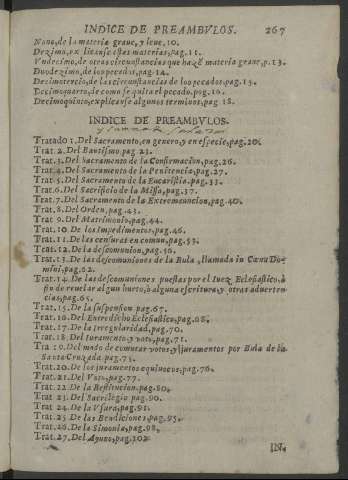 INDICE DE PREAMBVLOS. 267
Nono, de la materia graue, y leue, 10.
Dezimo, explicanse estas materias, pag. 11.
Vndecimo, de otras circunstancias que hazē materia graue, p. 13.
Duodezimo, de los pecados, pag. 14.
Dezimotercio, de las circunstancias de los pecados, pag. 15.
Dezimoquarto, de como se quita el pecado, pag. 16.
Dezimoquinto, explicanse algunos terminos, pag. 18.
INDICE DE PREAMBVLOS.
Tratado 1. Del Sacramento, en genero, y en especie, pag. 20.
Trat. 2. Del Bautismo. pag. 23.
Trat. 3. Del Sacramento de la Confirmacion, pag. 26.
Trat. 4. Del Sacramento de la Penitencia, pag. 27.
Trat. 5. Del Sacramento de la Eucaristia, pag. 33.
Trat. 6. Del Sacrificio de la Missa, pag. 37.
Trat. 7. Del Sacramento de la Extremauncion, pag. 40.
Trat. 8. Del Orden, pag. 43.
Trat. 9. Del Matrimonio, pag. 44.
Trat. 10. De los impedimentos, pag. 46.
Trat. 11. De las censuras en comun, pag. 53.
Trat. 12. De la descomunion, pag. 56.
Trat. 13. De las descomuniones de la Bula, llamada in Cœna Do-
mini, pag. 62.
Trat. 14. De las descomuniones puestas por el Iuez Eclesiastico, à
fin de reuelar algun hurto, ò alguna escritura, y otras aduerten-
cias, pag. 65.
Trat. 15. De la suspension pag. 67.
Trat. 16. Del Entredicho Eclesiastico, pag. 68.
Trat. 17. De la Irregularidad, pag. 70.
Trat. 18. Del Iuramento, y voto, pag. 71.
Tra 19. Del modo de comutar votos, y juramentos por Bula de la
Santa Cruzada. pag. 75.
Trat. 20. De los juramentos equiuocos, pag. 76.
Trat. 21. Del Voto, pag. 77.
Trat. 22. De la Restitucion, pag. 80.
Trat 23. Del Sacrilegio pag. 90.
Trat 24. De la Vsura, pag. 91.
Trat 25. De las Bendiciones, pag. 95.
Trat. 26. De la Simonia, pag. 98.
Trat. 27. Del Ayuno, pag. 102.
IN-